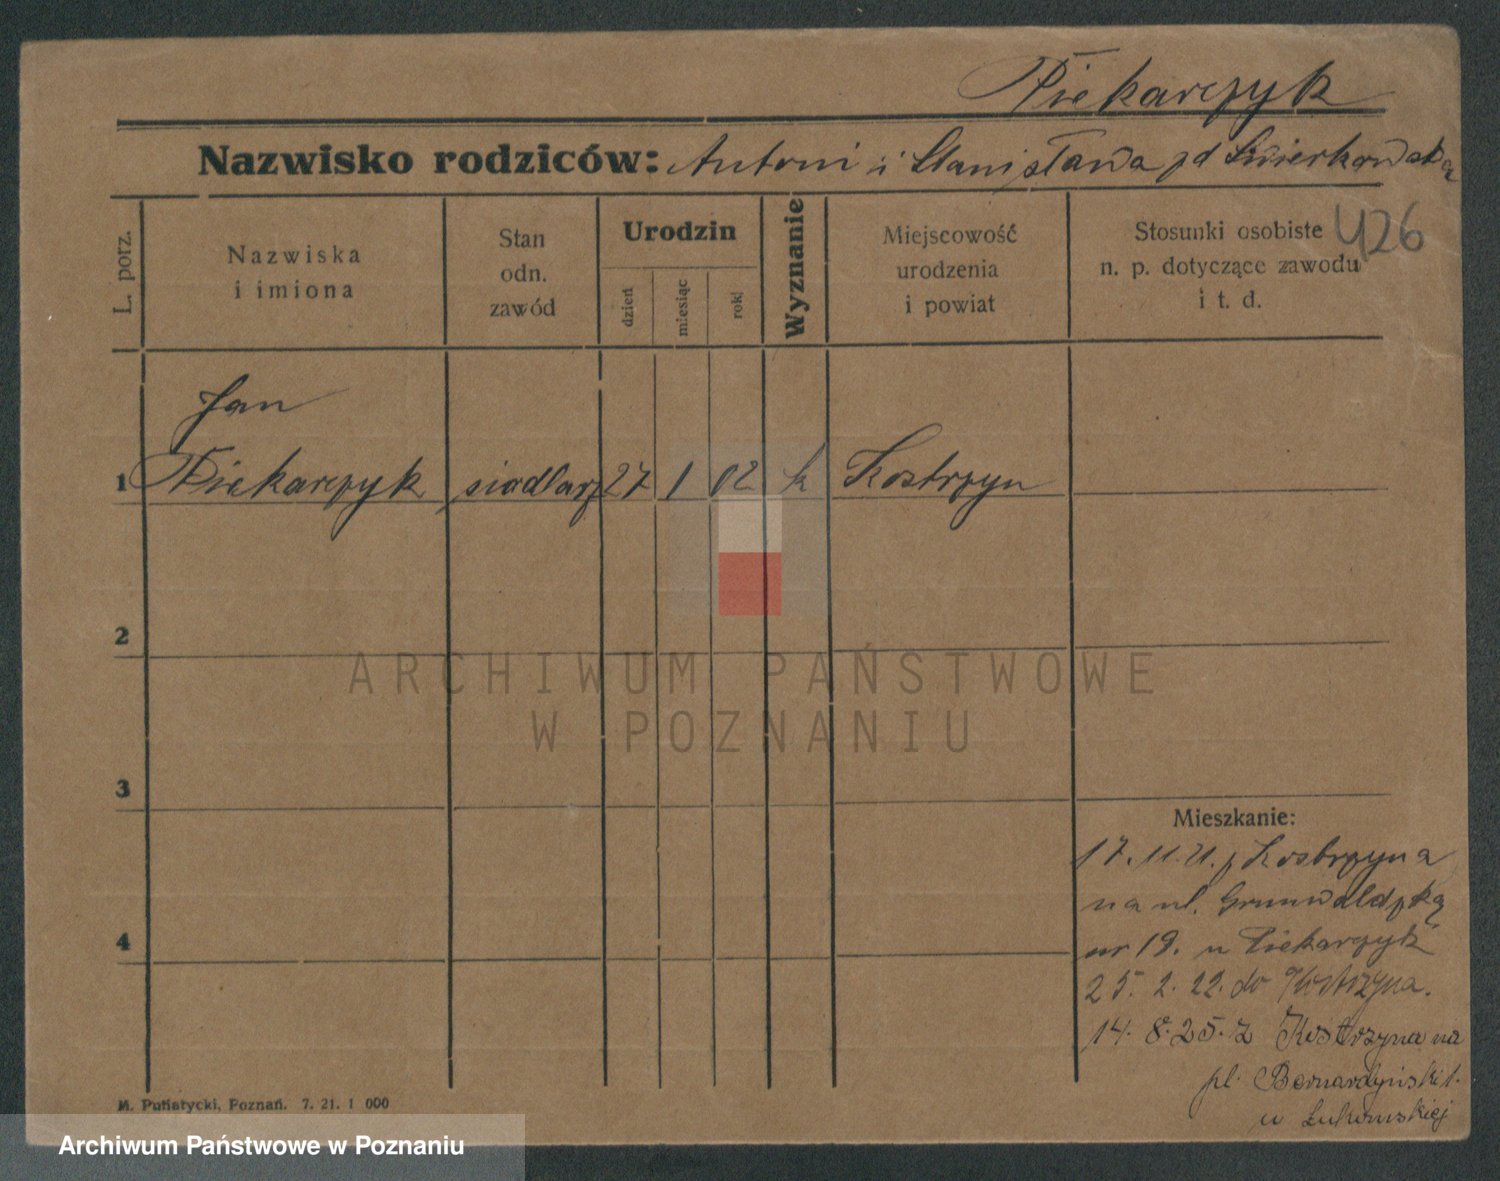 Piekarczyk
Nazwisko rodziców: Antoni i Stanisława zd Świerkowska
426
L. porz.
Nazwiska
i imiona
Stan
odn.
zawód
Urodzin
dzień
miesiąc
rok
Wyznanie
Miejscowość
urodzenia
i powiat
Stosunki osobiste
n. p. dotyczące zawodu
i t. d.
Jan
1 Piekarczyk siodlarz 27 1 02 k Kostrzyn
2
ARCHIWUM PAŃSTWOWE
W POZNANIU
3
Mieszkanie:
17.11.21. z Kostrzyna
na ul. Grunwaldzką
4
nr 19. u Piekarczyk
25. 2. 22. do Kostrzyna.
14. 8. 25. z Kostrzyna na
pl. Bernardyński 1.
u Łukomskiej
M. Putiatycki, Poznań. 7. 21. 1 000
Archiwum Państwowe w Poznaniu